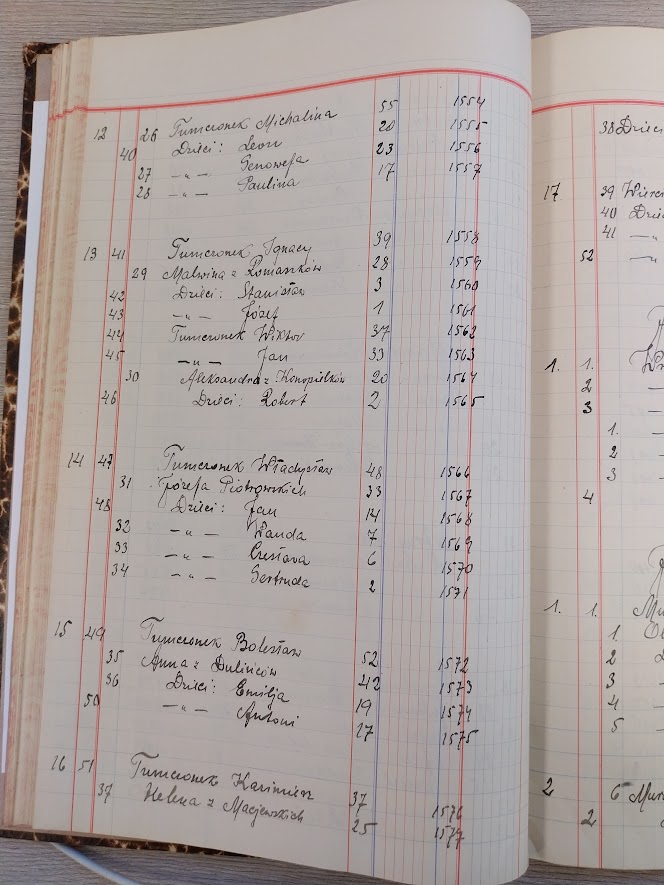 12 26 Tumcronek Michalina 55 1554
40 Dzieci: Leon 20 1555
27 -"- Genowefa 23 1556
28 -"- Paulina 17 1557
13 41 Tumcronek Ignacy 39 1558
29 Malwina z Romanków 28 1559
42 Dzieci: Stanisław 3 1560
43 -"- Józef 1 1561
44 Tumcronek Wiktor 37 1562
45 -"- Jan 33 1563
30 Aleksandra z Konopielków 20 1564
46 Dzieci: Robert 2 1565
14 47 Tumcronek Władysław 48 1566
31 Józefa Piotrowskich 33 1567
48 Dzieci: Jan 14 1568
32 -"- Wanda 7 1569
33 -"- Czesława 6 1570
34 -"- Gertruda 2 1571
15 49 Tumcronek Bolesław 52 1572
35 Anna z Dulińców 42 1573
36 Dzieci: Emilja 19 1574
50 -"- Antoni 27 1575
16 51 Tumcronek Kazimierz 37 1576
37 Helena z Maejewskich 25 1577
38 Dzieci
17 39
40
41 -"-
52 -"-
1. 1.
2 -
3 -
1. -
2 -
3 -
4
1. 1.
1.
2
3 -
4 -
5 -
2 6
2